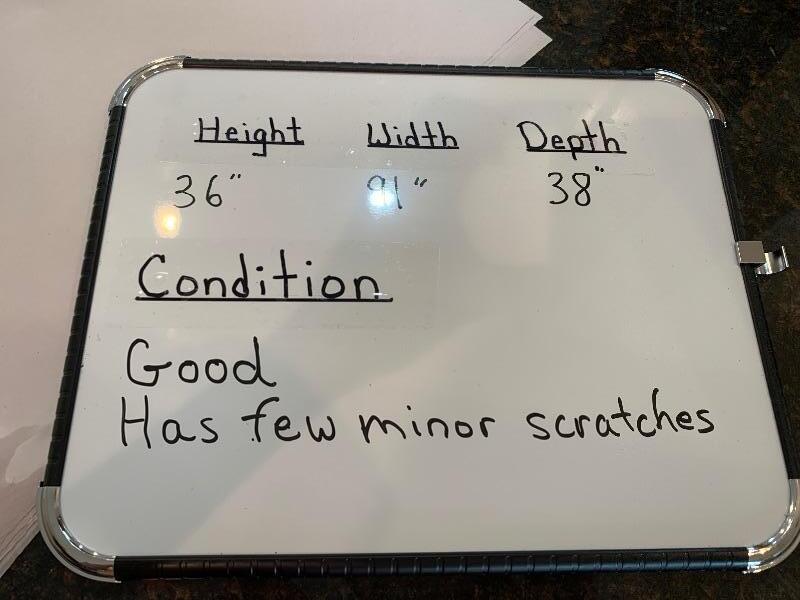 Height Width Depth
36" 91" 38"
Condition
Good
Has few minor scratches